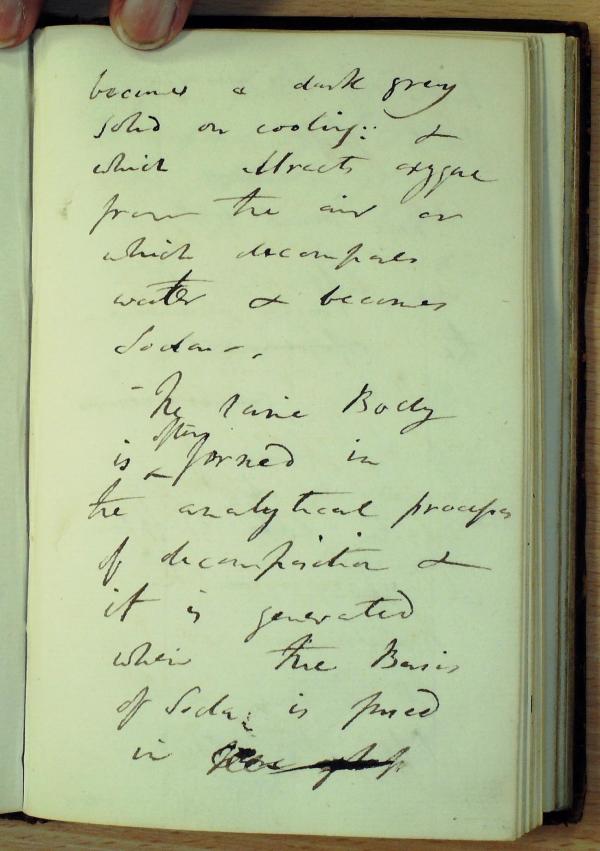 becomes a dark grey
solid on cooling: &
which attracts oxygene
from the air or
which decomposes
water & becomes
Soda -.
- The same Body
often
is ^ formed in
the analytical processes
of decomposition &
it is generated
when the Basis
of Soda is fused
in